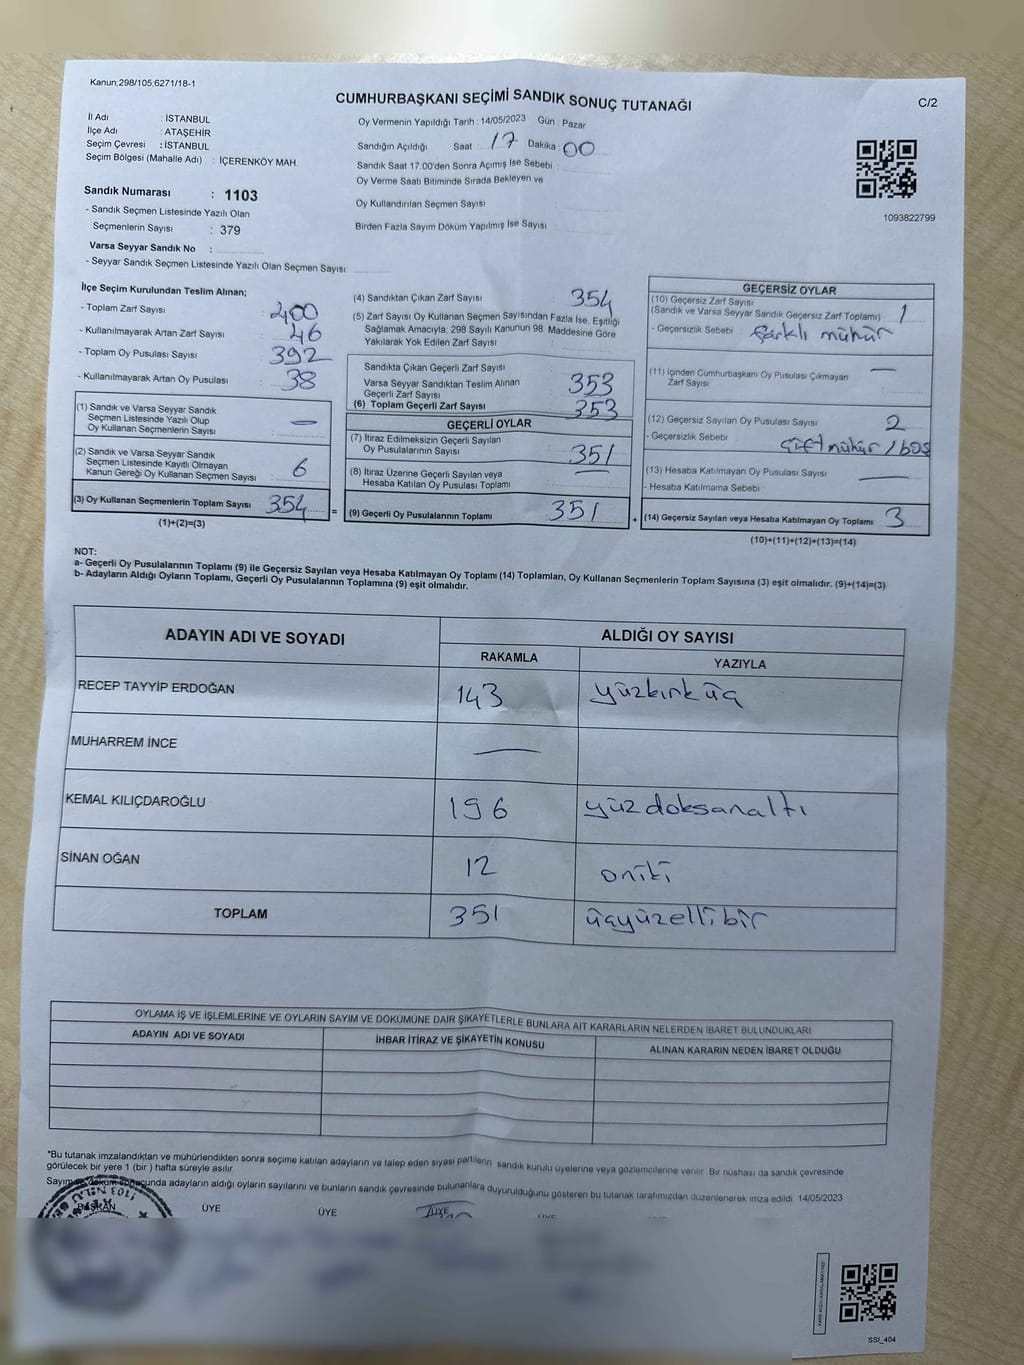 Kanun;298/105,6271/18-1
CUMHURBAŞKANI SEÇİMİ SANDIK SONUÇ TUTANAĞI
C/2
İl Adı : İSTANBUL
İlçe Adı : ATAŞEHİR
Seçim Çevresi : İSTANBUL
Seçim Bölgesi (Mahalle Adı) : İÇERENKÖY MAH.
Oy Vermenin Yapıldığı Tarih : 14/05/2023 Gün : Pazar
Sandığın Açıldığı Saat : 17 Dakika : 00
Sandık Saat 17.00'den Sonra Açımış İse Sebebi :
Oy Verme Saati Bitiminde Sırada Bekleyen ve
Oy Kullandırılan Seçmen Sayısı :
Birden Fazla Sayım Döküm Yapılmış İse Sayısı :
1093822799
Sandık Numarası : 1103
- Sandık Seçmen Listesinde Yazılı Olan
Seçmenlerin Sayısı : 379
Varsa Seyyar Sandık No :
- Seyyar Sandık Seçmen Listesinde Yazılı Olan Seçmen Sayısı:
İlçe Seçim Kurulundan Teslim Alınan;
- Toplam Zarf Sayısı : 400
- Kullanılmayarak Artan Zarf Sayısı : 46
- Toplam Oy Pusulası Sayısı : 392
- Kullanılmayarak Artan Oy Pusulası : 38
(1) Sandık ve Varsa Seyyar Sandık
Seçmen Listesinde Yazılı Olup
Oy Kullanan Seçmenlerin Sayısı : —
(2) Sandık ve Varsa Seyyar Sandık
Seçmen Listesinde Kayıtlı Olmayan
Kanun Gereği Oy Kullanan Seçmen Sayısı : 6
(3) Oy Kullanan Seçmenlerin Toplam Sayısı : 354
(1)+(2)=(3)
=
(4) Sandıktan Çıkan Zarf Sayısı : 354
(5) Zarf Sayısı Oy Kullanan Seçmen Sayısından Fazla İse, Eşitliği
Sağlamak Amacıyla; 298 Sayılı Kanunun 98. Maddesine Göre
Yakılarak Yok Edilen Zarf Sayısı :
Sandıkta Çıkan Geçerli Zarf Sayısı : 353
Varsa Seyyar Sandıktan Teslim Alınan
Geçerli Zarf Sayısı :
(6) Toplam Geçerli Zarf Sayısı : 353
GEÇERLİ OYLAR
(7) İtiraz Edilmeksizin Geçerli Sayılan
Oy Pusulasının Sayısı : 351
(8) İtiraz Üzerine Geçerli Sayılan veya
Hesaba Katılan Oy Pusulası Toplamı : —
(9) Geçerli Oy Pusulalarının Toplamı : 351
+
GEÇERSİZ OYLAR
(10) Geçersiz Zarf Sayısı
(Sandık ve Varsa Seyyar Sandık Geçersiz Zarf Toplamı) : 1
- Geçersizlik Sebebi : farklı mühür
(11) İçinden Cumhurbaşkanı Oy Pusulası Çıkmayan
Zarf Sayısı : —
(12) Geçersiz Sayılan Oy Pusulası Sayısı : 2
- Geçersizlik Sebebi : çift mühür / boş
(13) Hesaba Katılmayan Oy Pusulası Sayısı : —
- Hesaba Katılmama Sebebi :
(14) Geçersiz Sayılan veya Hesaba Katılmayan Oy Toplamı : 3
(10)+(11)+(12)+(13)=(14)
NOT:
a- Geçerli Oy Pusulalarının Toplamı (9) ile Geçersiz Sayılan veya Hesaba Katılmayan Oy Toplamı (14) Toplamları, Oy Kullanan Seçmenlerin Toplam Sayısına (3) eşit olmalıdır. (9)+(14)=(3)
b- Adayların Aldığı Oyların Toplamı, Geçerli Oy Pusulalarının Toplamına (9) eşit olmalıdır.
ADAYIN ADI VE SOYADI ALDIĞI OY SAYISI
RAKAMLA YAZIYLA
RECEP TAYYİP ERDOĞAN 143 yüzkırküç
MUHARREM İNCE —
KEMAL KILIÇDAROĞLU 196 yüzdoksanaltı
SİNAN OĞAN 12 oniki
TOPLAM 351 üçyüzellibir
OYLAMA İŞ VE İŞLEMLERİNE VE OYLARIN SAYIM VE DÖKÜMÜNE DAİR ŞİKAYETLERLE BUNLARA AİT KARARLARIN NELERDEN İBARET BULUNDUKLARI
ADAYIN ADI VE SOYADI İHBAR İTİRAZ VE ŞİKAYETİN KONUSU ALINAN KARARIN NEDEN İBARET OLDUĞU
"Bu tutanak imzalandıktan ve mühürlendikten sonra seçime katılan adayların ve talep eden siyasi partilerin sandık kurulu üyelerine veya gözlemcilerine verilir. Bir nüshası da sandık çevresinde
görülecek bir yere 1 (bir) hafta süreyle asılır.
Sayım ve döküm sonucunda adayların aldığı oyların sayılarını ve bunların sandık çevresinde bulunanlara duyurulduğunu gösteren bu tutanak tarafımızdan düzenlenerek imza edildi. 14/05/2023
BAŞKAN ÜYE ÜYE ÜYE
SSI_404